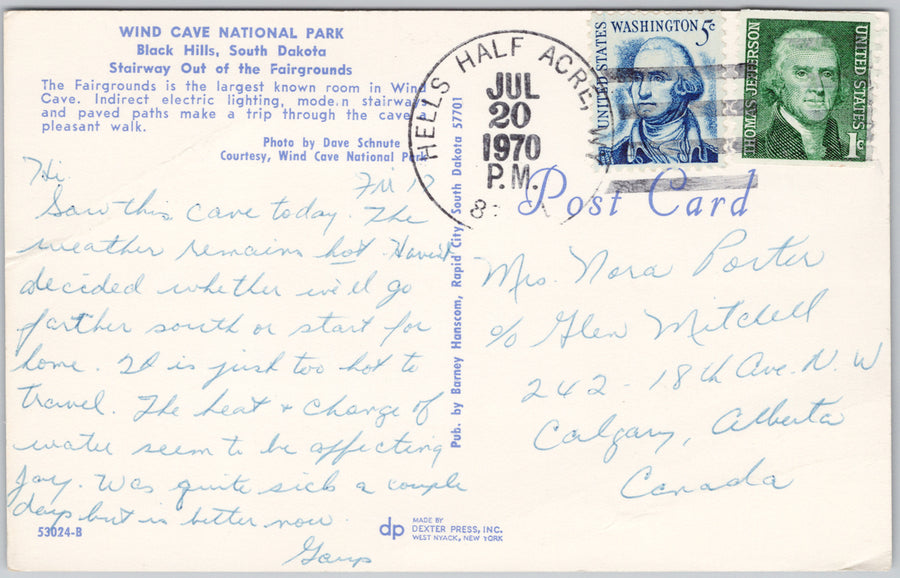 WIND CAVE NATIONAL PARK
Black Hills, South Dakota
Stairway Out of the Fairgrounds
The Fairgrounds is the largest known room in Wind
Cave. Indirect electric lighting, mode.n stairway
and paved paths make a trip through the cave
pleasant walk.
Photo by Dave Schnute
Courtesy, Wind Cave National Park
Hi.
Fri 17
Saw this cave today. The
weather remains hot. Haven't
decided whether we'll go
farther south or start for
home. It is just too hot to
travel. The heat & change of
water seem to be affecting
Jay. Was quite sick a couple
days but is better now.
53024-B
dp MADE BY
DEXTER PRESS, INC.
WEST NYACK, NEW YORK
Pub. by Barney Hanscom, Rapid City, South Dakota 57701
HELLS HALF ACRE, WY
JUL
20
1970
P.M.
UNITED STATES
WASHINGTON 5c
THOMAS JEFFERSON
UNITED STATES
1c
Post Card
Mrs. Nora Porter
c/o Glen Mitchell
242 - 18th Ave. N. W
Calgary, Alberta
Canada